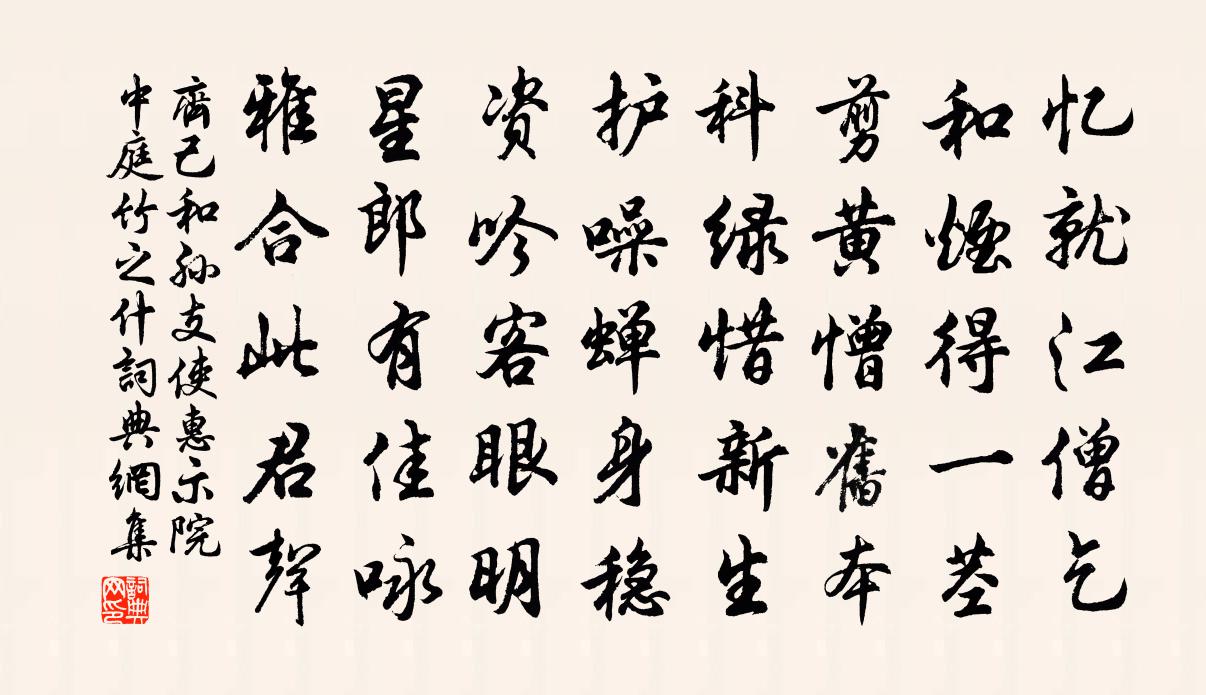 忆就江僧乞
和烟得一茎
剪黄憎舊本
科绿惜新生
护噪蝉身稳
资吟客眼明
星郎有佳咏
雅合此君聲
齊己和孙支使惠示院
中庭竹之什詞典網集
詞典
网印